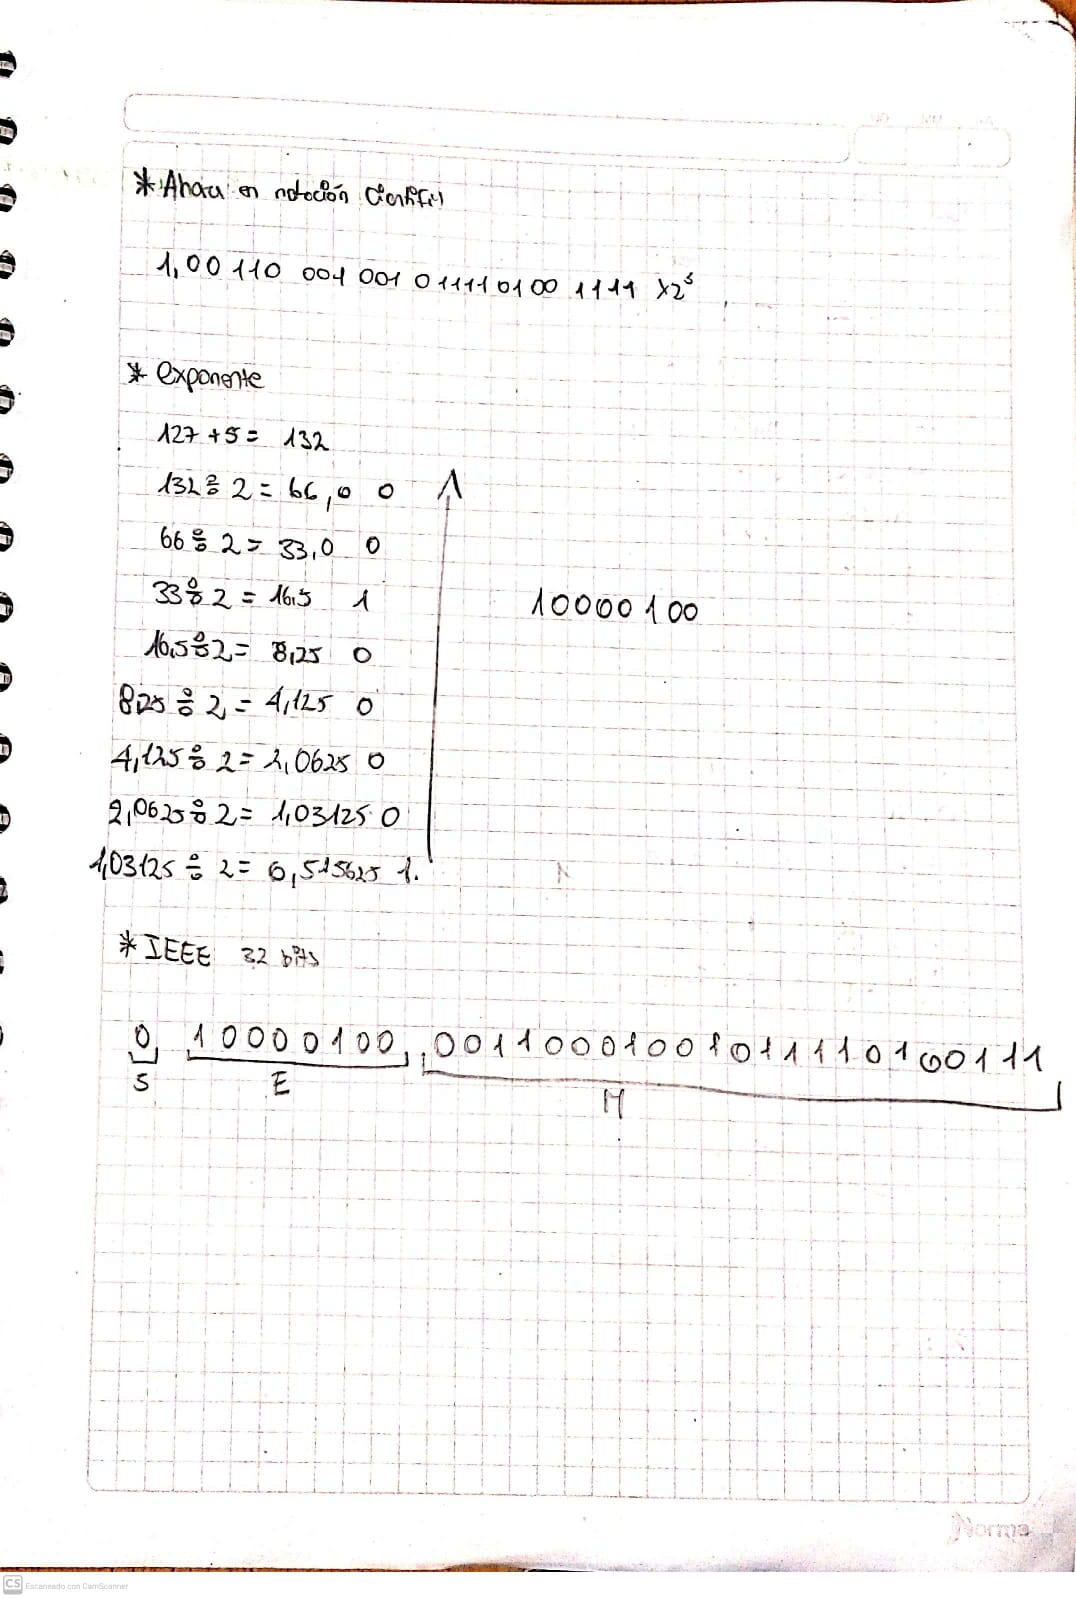 * Ahora en notación Científi
1,00 110 001 001 01111 0100 1111 x2⁵
* exponente
127 + 5 = 132
132 ÷ 2 = 66,0 0
66 ÷ 2 = 33,0 0
33 ÷ 2 = 16,5 1
10000100
16,5 ÷ 2 = 8,25 0
8,25 ÷ 2 = 4,125 0
4,125 ÷ 2 = 2,0625 0
2,0625 ÷ 2 = 1,03125 0
1,03125 ÷ 2 = 0,515625 1.
* IEEE 32 bits
0 10000100 00110001001011110100111
S E M
Norma
CS Escaneado con CamScanner